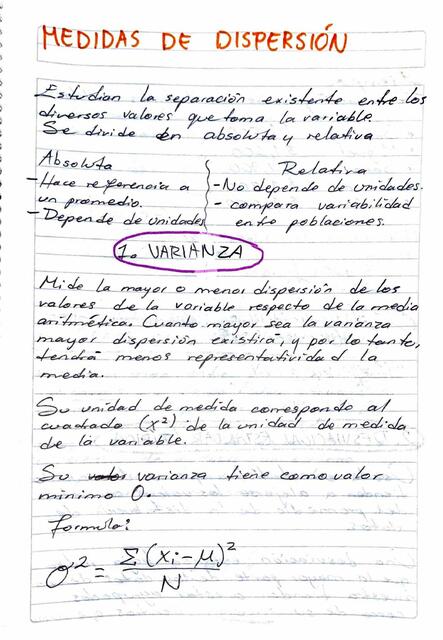 MEDIDAS DE DISPERSIÓN
Estudian la separación existente entre los
diversos valores que toma la variable.
Se divide en absoluta y relativa
Absoluta
- Hace referencia a
un promedio.
- Depende de unidades
Relativa
- No depende de unidades.
- compara variabilidad
entre poblaciones.
1. VARIANZA
Mide la mayor o menor dispersión de los
valores de la variable respecto de la media
aritmética. Cuanto mayor sea la varianza
mayor dispersión existirá, y por lo tanto,
tendrá menos representatividad la
media.
Su unidad de medida corresponde al
cuadrado (x²) de la unidad de medida
de la variable.
Su varianza tiene como valor
minimo 0.
formula:
σ² = Σ(xi - μ)² / N